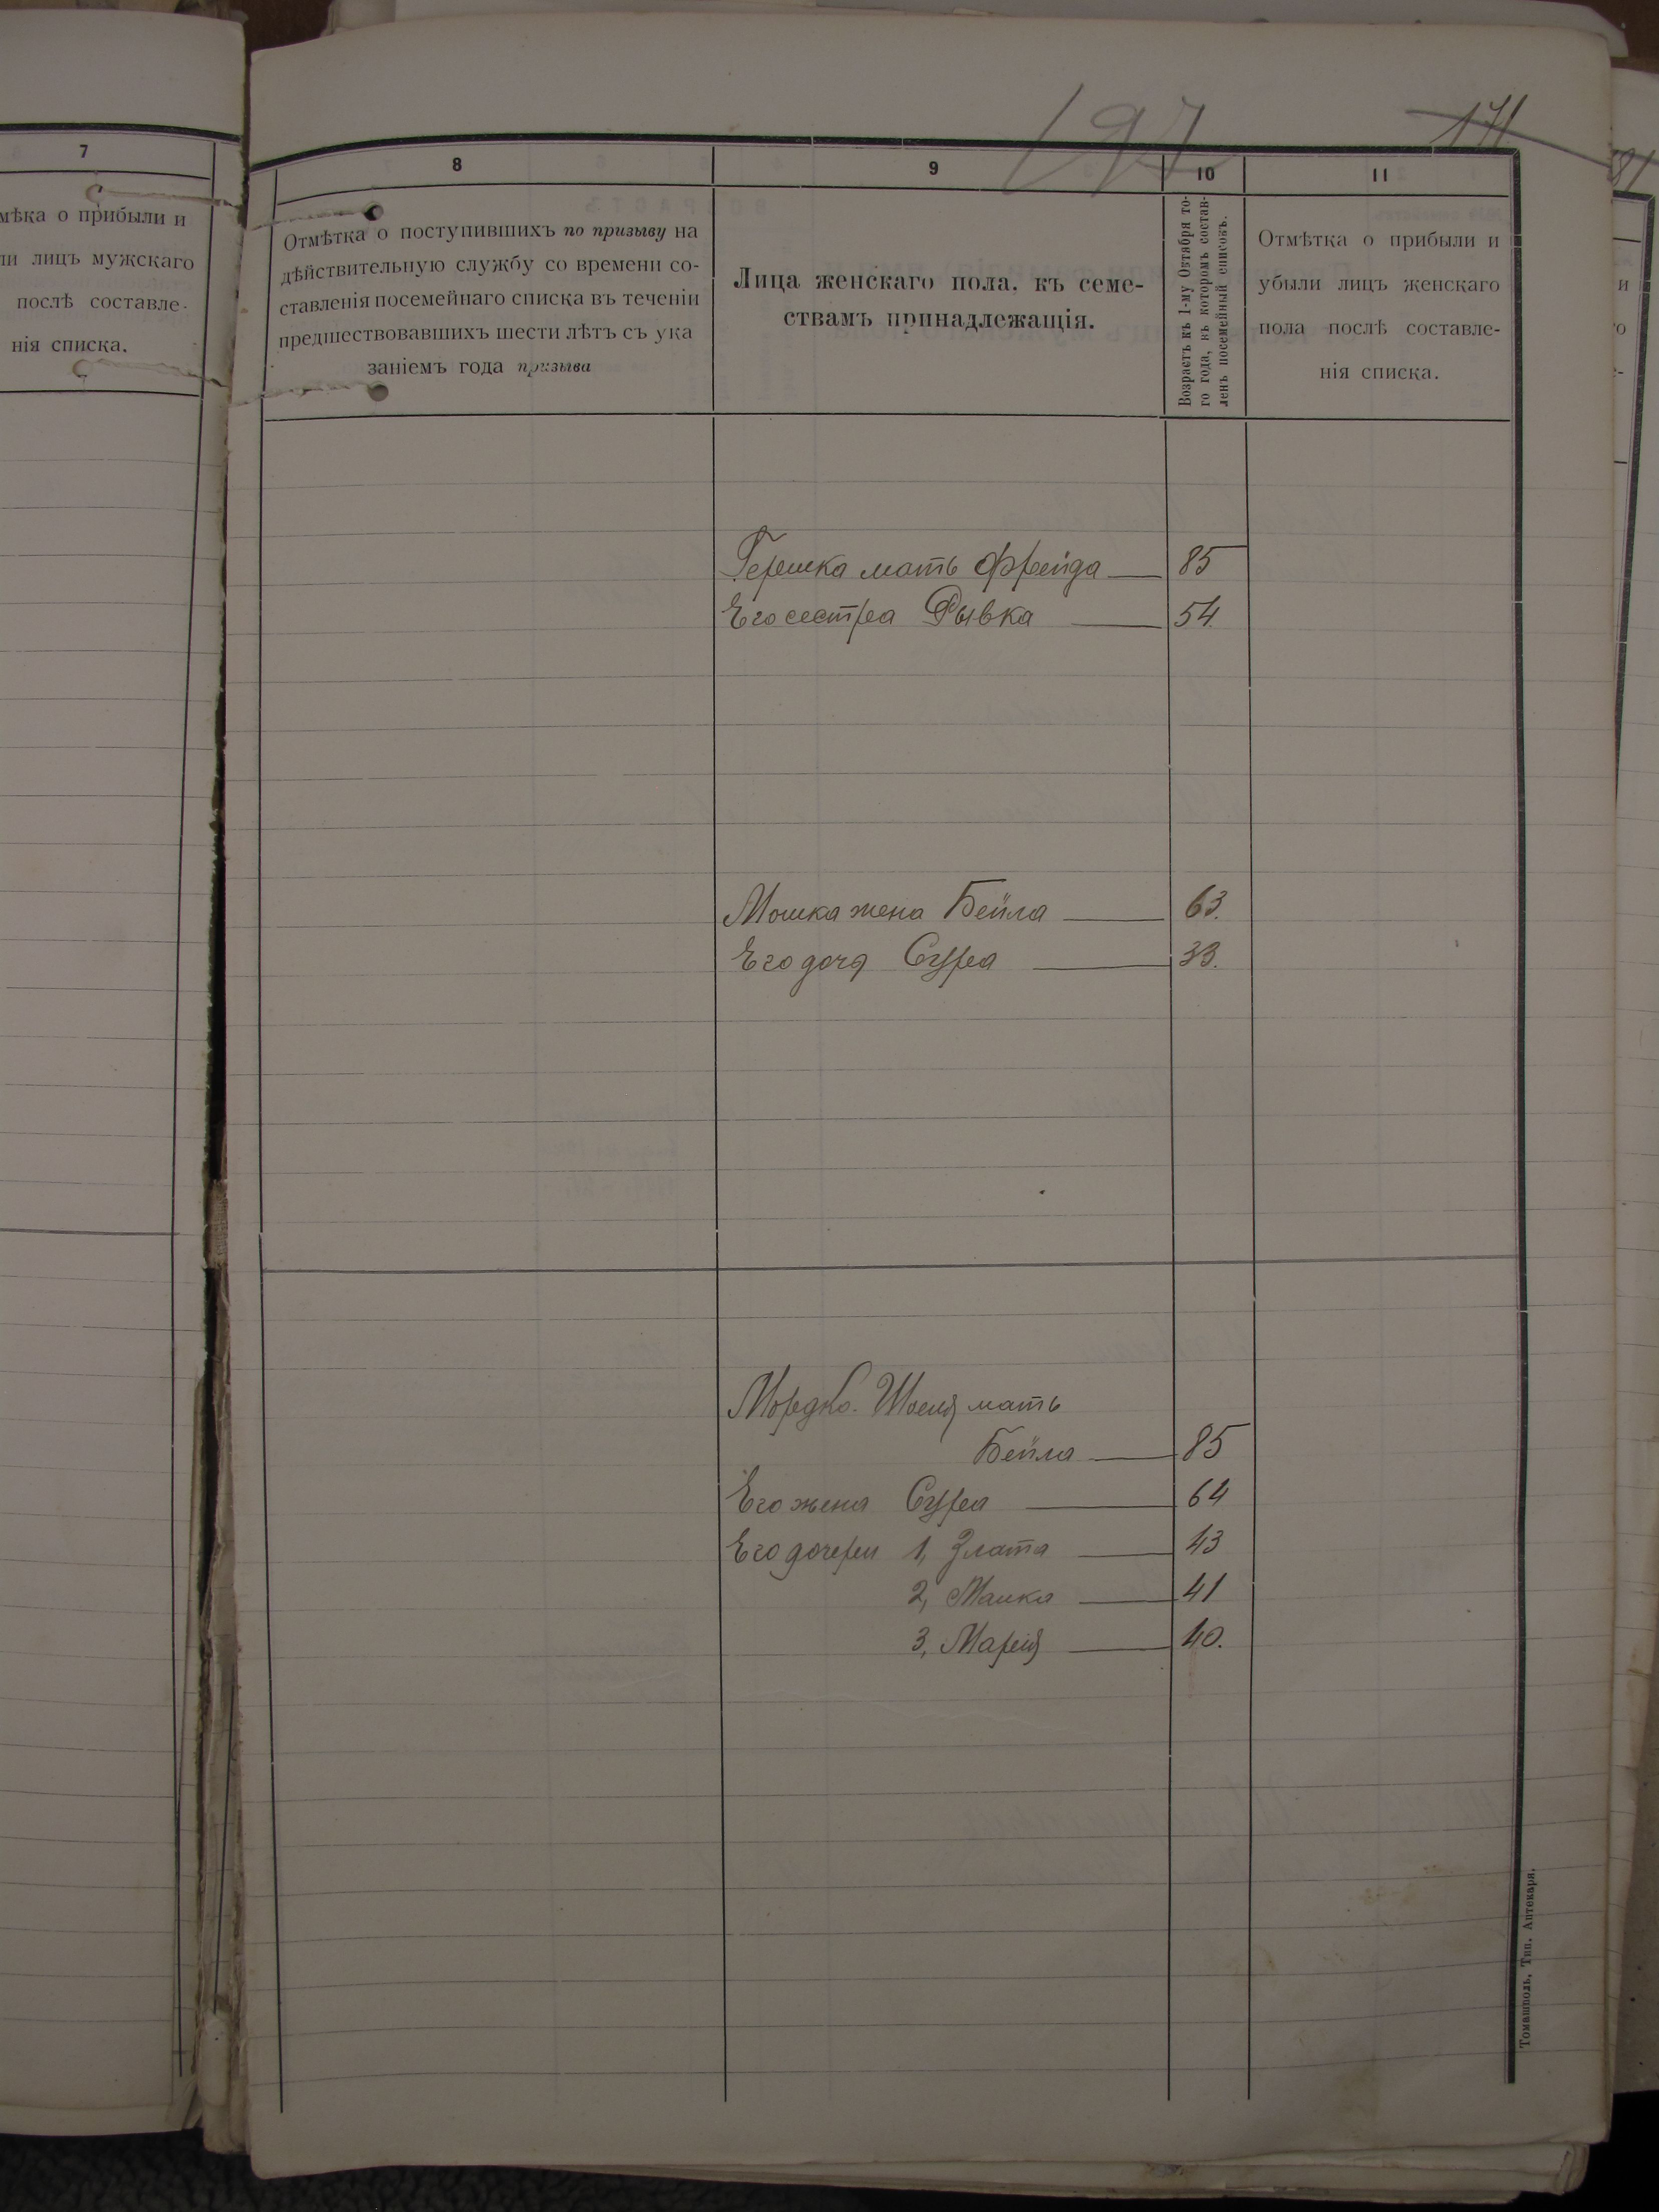 197
171
7
мѣка о прибыли и
ли лицъ мужскаго
послѣ составле-
нія списка.
8
Отмѣтка о поступившихъ по призыву на
дѣйствительную службу со времени со-
ставленія посемейнаго списка въ теченіи
предшествовавшихъ шести лѣтъ съ ука
заніемъ года призыва
9
Лица женскаго пола, къ семе-
ствамъ принадлежащія.
10
Возрастъ къ 1-му Октября то-
го года, въ которомъ состав-
ленъ посемейный списокъ.
11
Отмѣтка о прибыли и
убыли лицъ женскаго
пола послѣ составле-
нія списка.
Гершка мать Фрейда 85
Его сестра Рывка 54.
Мошка жена Бейла 63.
Его доч Сура 33.
Мордко. мать
Бейла 85
Его жена Сура 64
Его дочери 1, Злата 43
2, Манка 41
3, Марія 40.
Томашполь, Тип. Аптекаря.